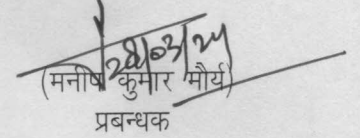 28/03/24
(मनीष कुमार मौर्य)
प्रबन्धक